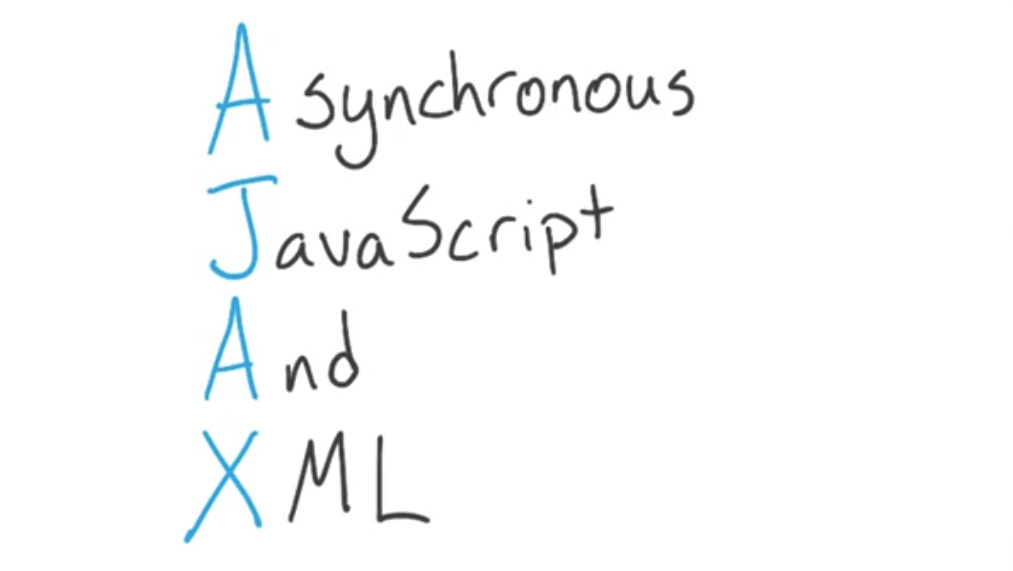 Asynchronous
JavaScript
And
XML